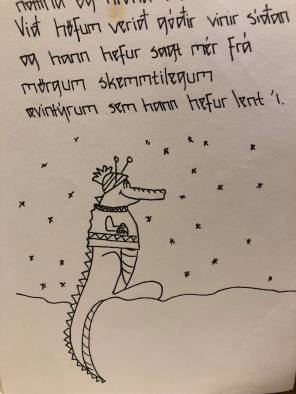 Við höfum verið góðir vinir síðan
og hann hefur sagt mér frá
mörgum skemmtilegum
ævintýrum sem hann hefur lent í.